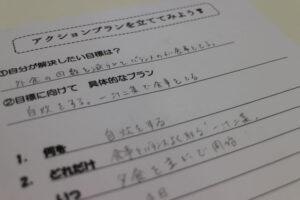 アクションプランを立ててみよう!
①自分が解決したい目標は?
外食の回数を減らしてバランスのよい食事をとる。
②目標に向けて 具体的なプラン
自炊をする。一汁二菜で食事をとる
1. 何を 自炊をする
2. どれだけ 食事をバランスよく 一汁二菜。
いつ 夕食を